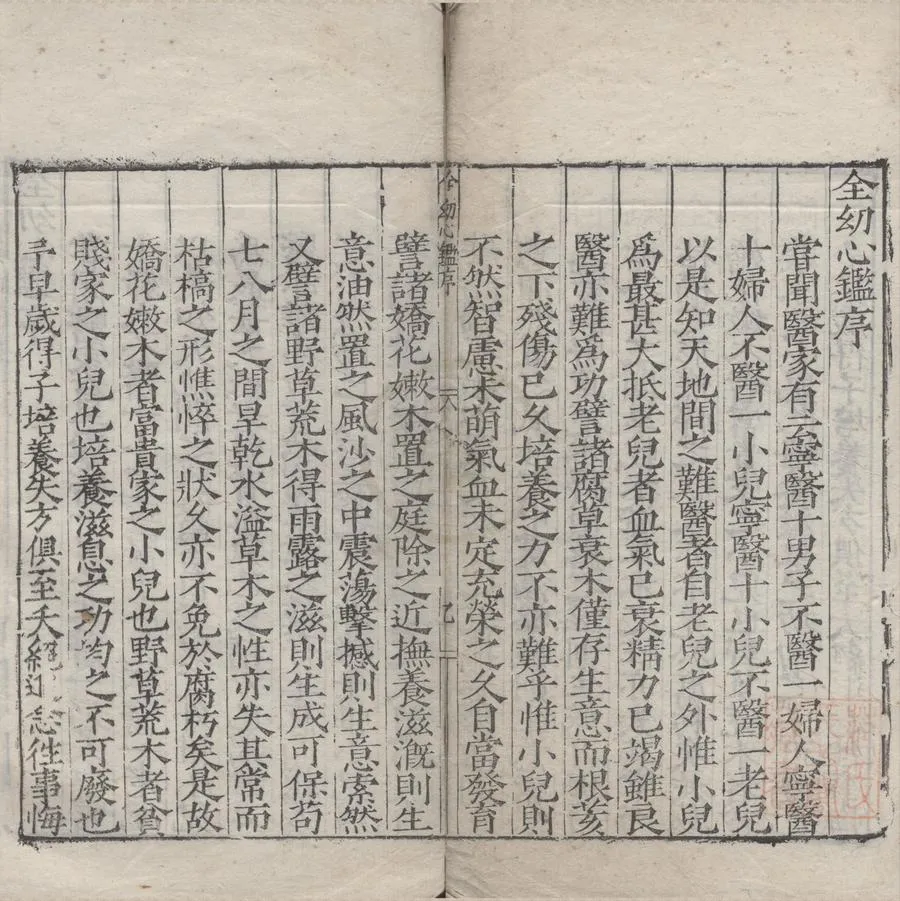 全幼心鑑序
甞聞醫家有云寧醫十男子不醫一婦人寧醫
十婦人不醫一小兒寧醫十小兒不醫一老兒
以是知天地間之難醫者自老兒之外惟小兒
爲最甚大抵老兒者血氣已衰精力已竭雖良
醫亦難爲功譬諸腐草衰木僅存生意而根荄
之下殘傷已久培養之力不亦難乎惟小兒則
不然智慮未萌氣血未定充榮之久自當發育
全幼心鑑序
譬諸嬌花嫩木置之庭除之近撫養滋漑則生
意油然置之風沙之中震蕩擊撼則生意索然
又譬諸野草荒木得雨露之滋則生成可保苟
七八月之間旱乾水溢草木之性亦失其常而
枯槁之形憔悴之狀久亦不免於腐朽矣是故
嬌花嫩木者富貴家之小兒也野草荒木者貧
賤家之小兒也培養滋息之功均之不可廢也
予早歲得子培養失方俱至夭絕追念往事悔